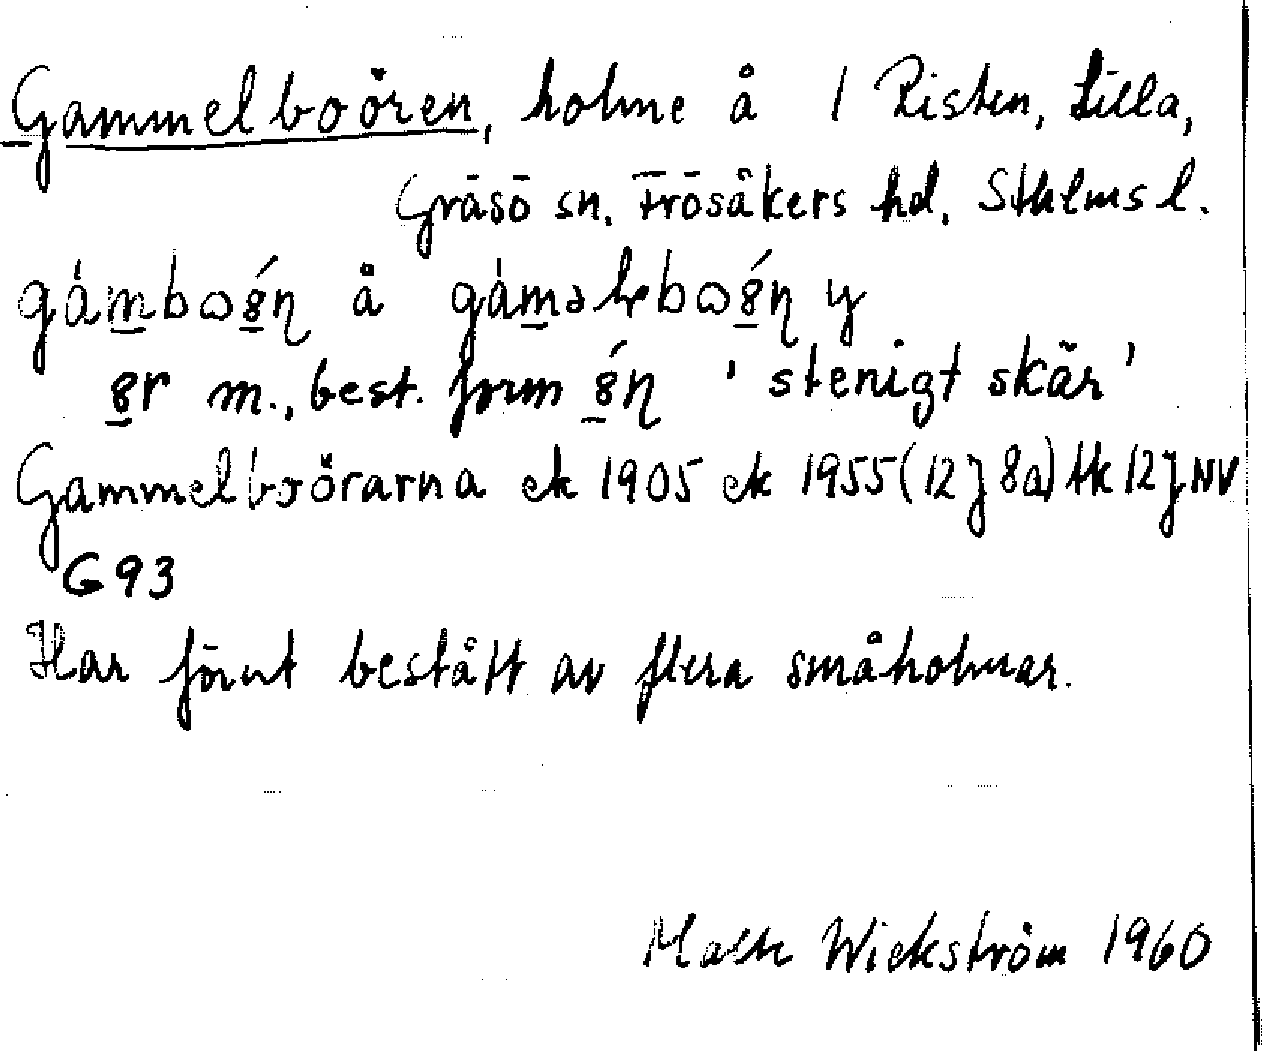 Gammelboören, holme å 1 Risten, Lilla,
Gräsö sn, Frösåkers hd, Sthlms l.
å y
m., best. form ' stenigt skär '
Gammelboörarna ek 1905 ek 1955 (12 J 8a) tk 12 J NV
G 93
Har förut bestått av flera småholmar.
Malte Wickström 1960